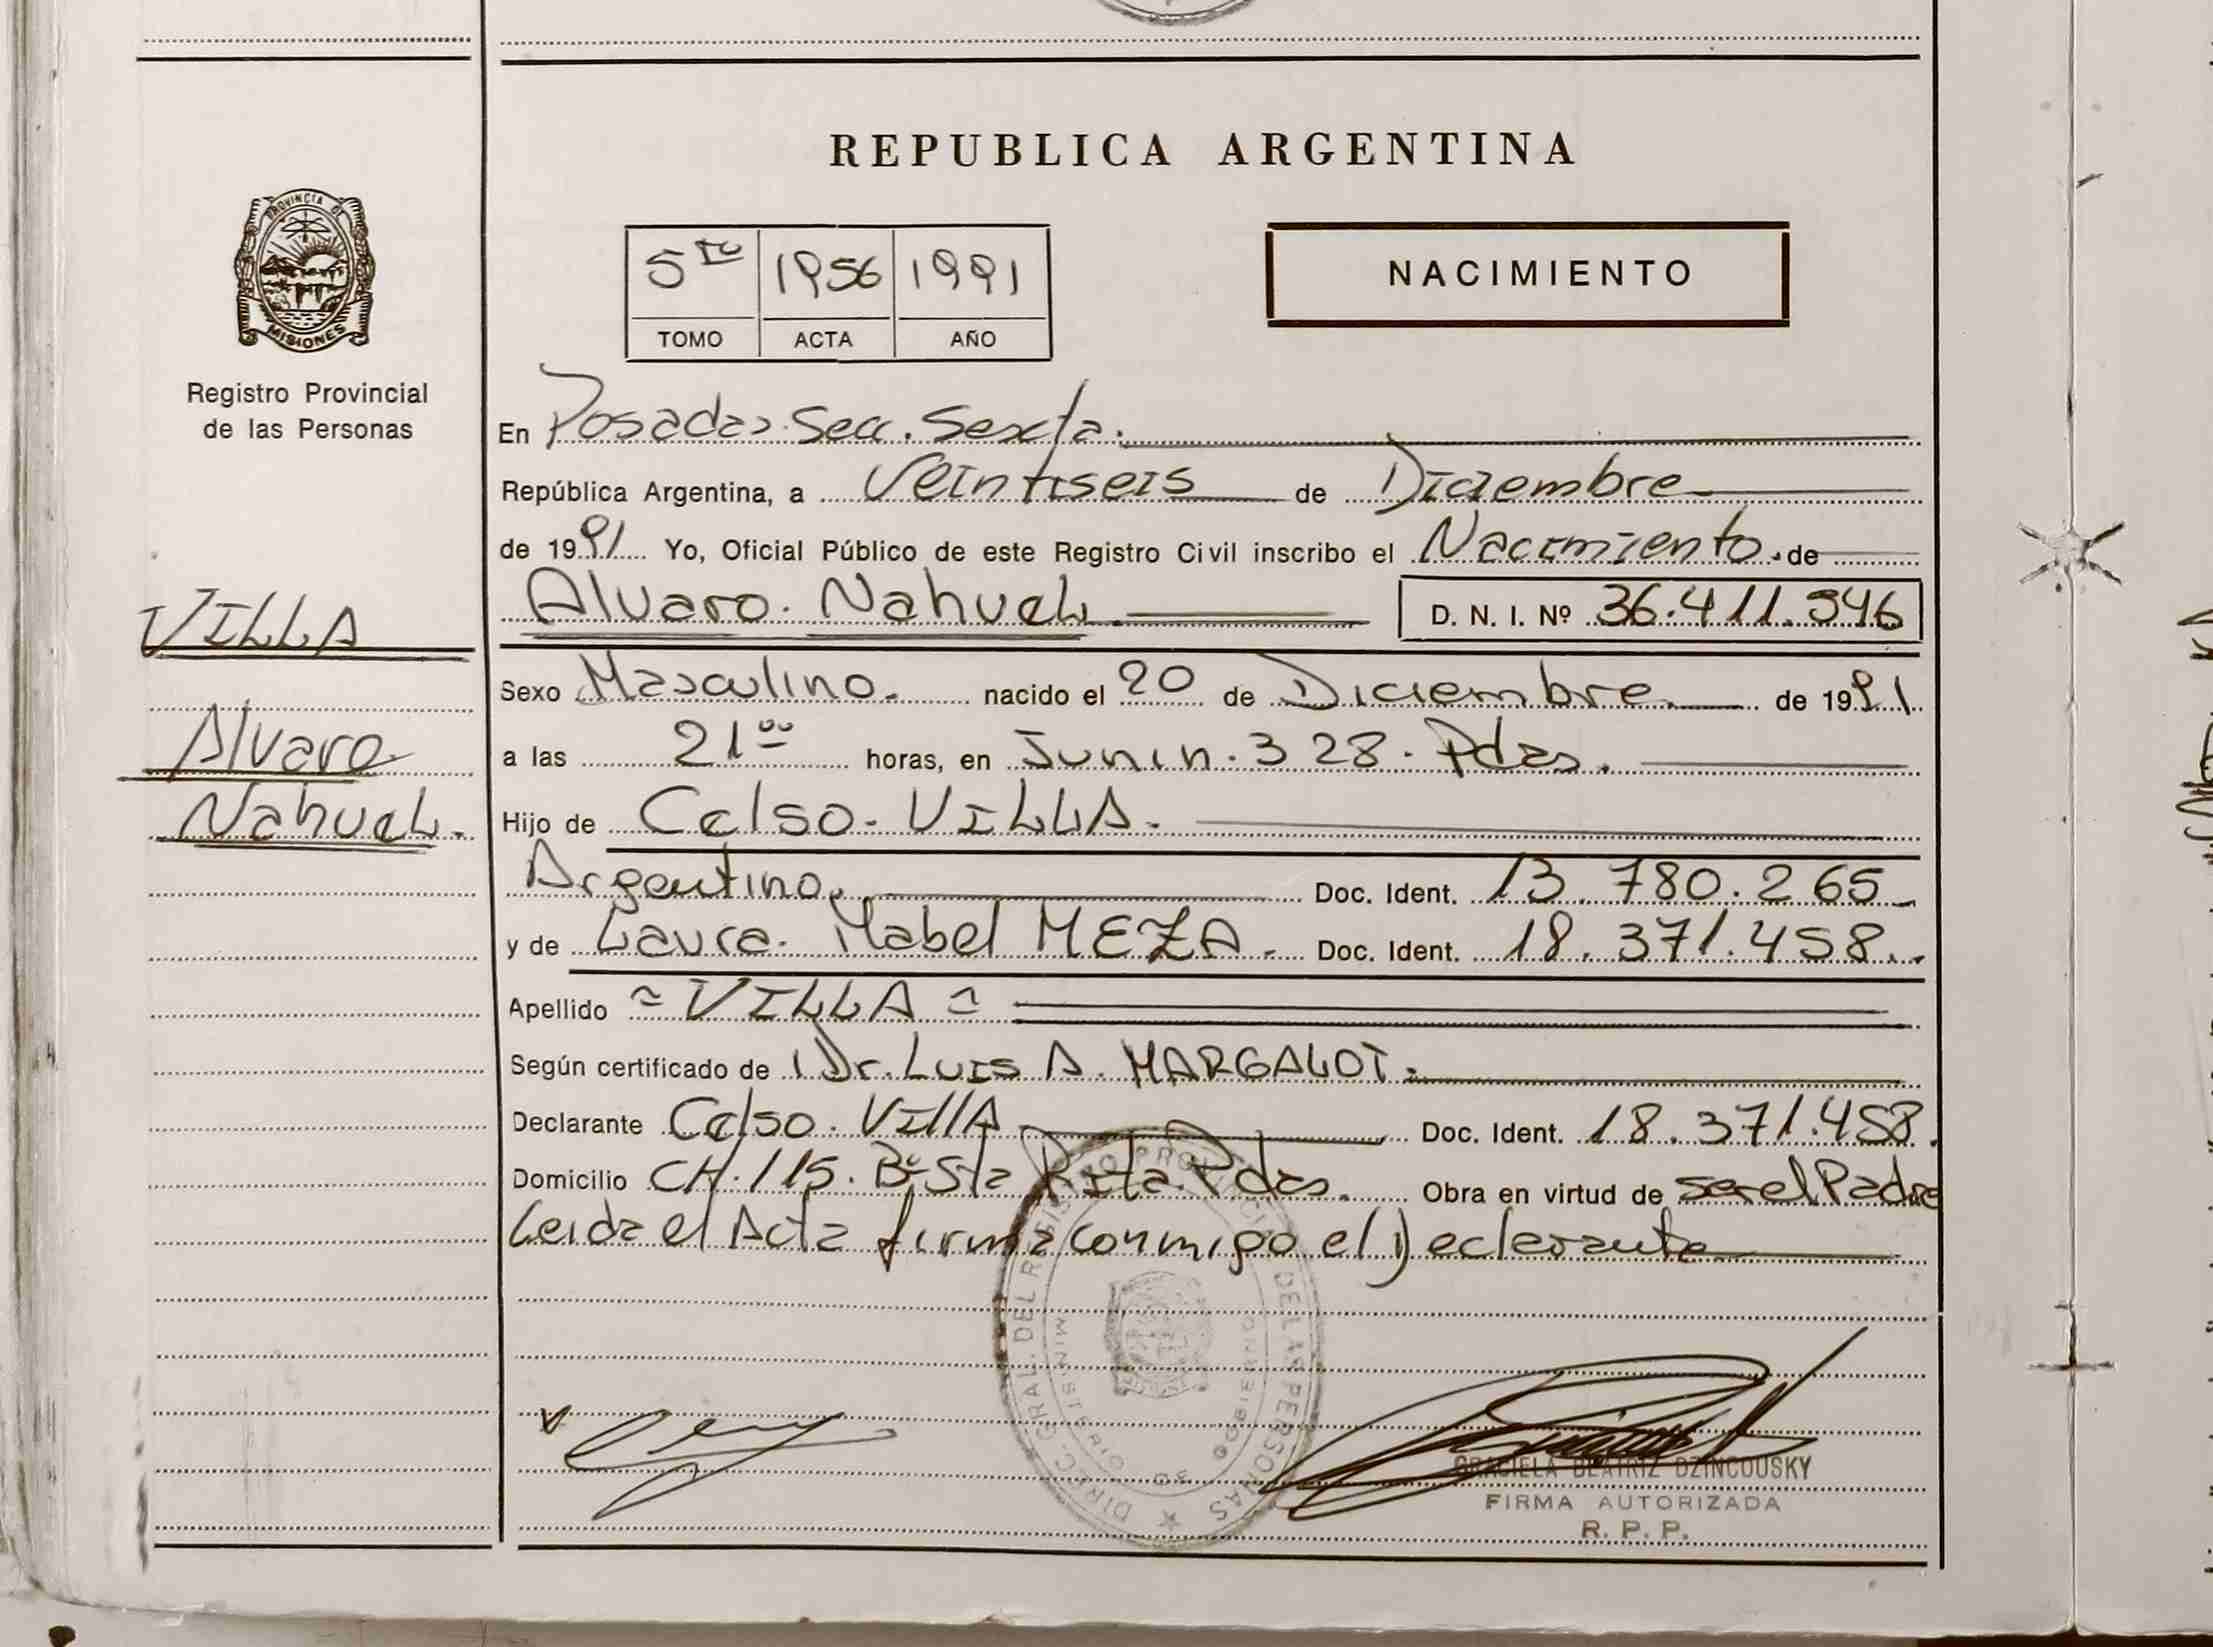 REPUBLICA ARGENTINA
PROVINCIA DE MISIONES
Registro Provincial
de las Personas
5to 1956 1991
TOMO ACTA AÑO
NACIMIENTO
En Posadas. Secc. Sexta.
República Argentina, a Veintiseis de Diciembre
de 1991 Yo, Oficial Público de este Registro Civil inscribo el Nacimiento. de
Alvaro. Nahuel. D. N. I. Nº 36.411.546
VILLA
Alvaro
Nahuel.
Sexo Masculino. nacido el 20 de Diciembre de 1991
a las 21°° horas, en Junin. 328. Pdas.
Hijo de Celso. VILLA.
Argentino. Doc. Ident. 13.780.265
y de Laura. Mabel MEZA. Doc. Ident. 18.371.458.
Apellido = VILLA =
Según certificado de Dr. Luis A. MARGALOT.
Declarante Celso. Villa Doc. Ident. 18.371.458.
Domicilio CH.115. Bº Sta Rita. Pdas. Obra en virtud de ser el Padre
Leida el Acta firma conmigo el Declarante
DIREC. GRAL. DEL REGISTRO PROVINCIAL DE LAS PERSONAS
MINISTERIO DE GOBIERNO
GRACIELA BEATRIZ DZINCOUSKY
FIRMA AUTORIZADA
R. P. P.